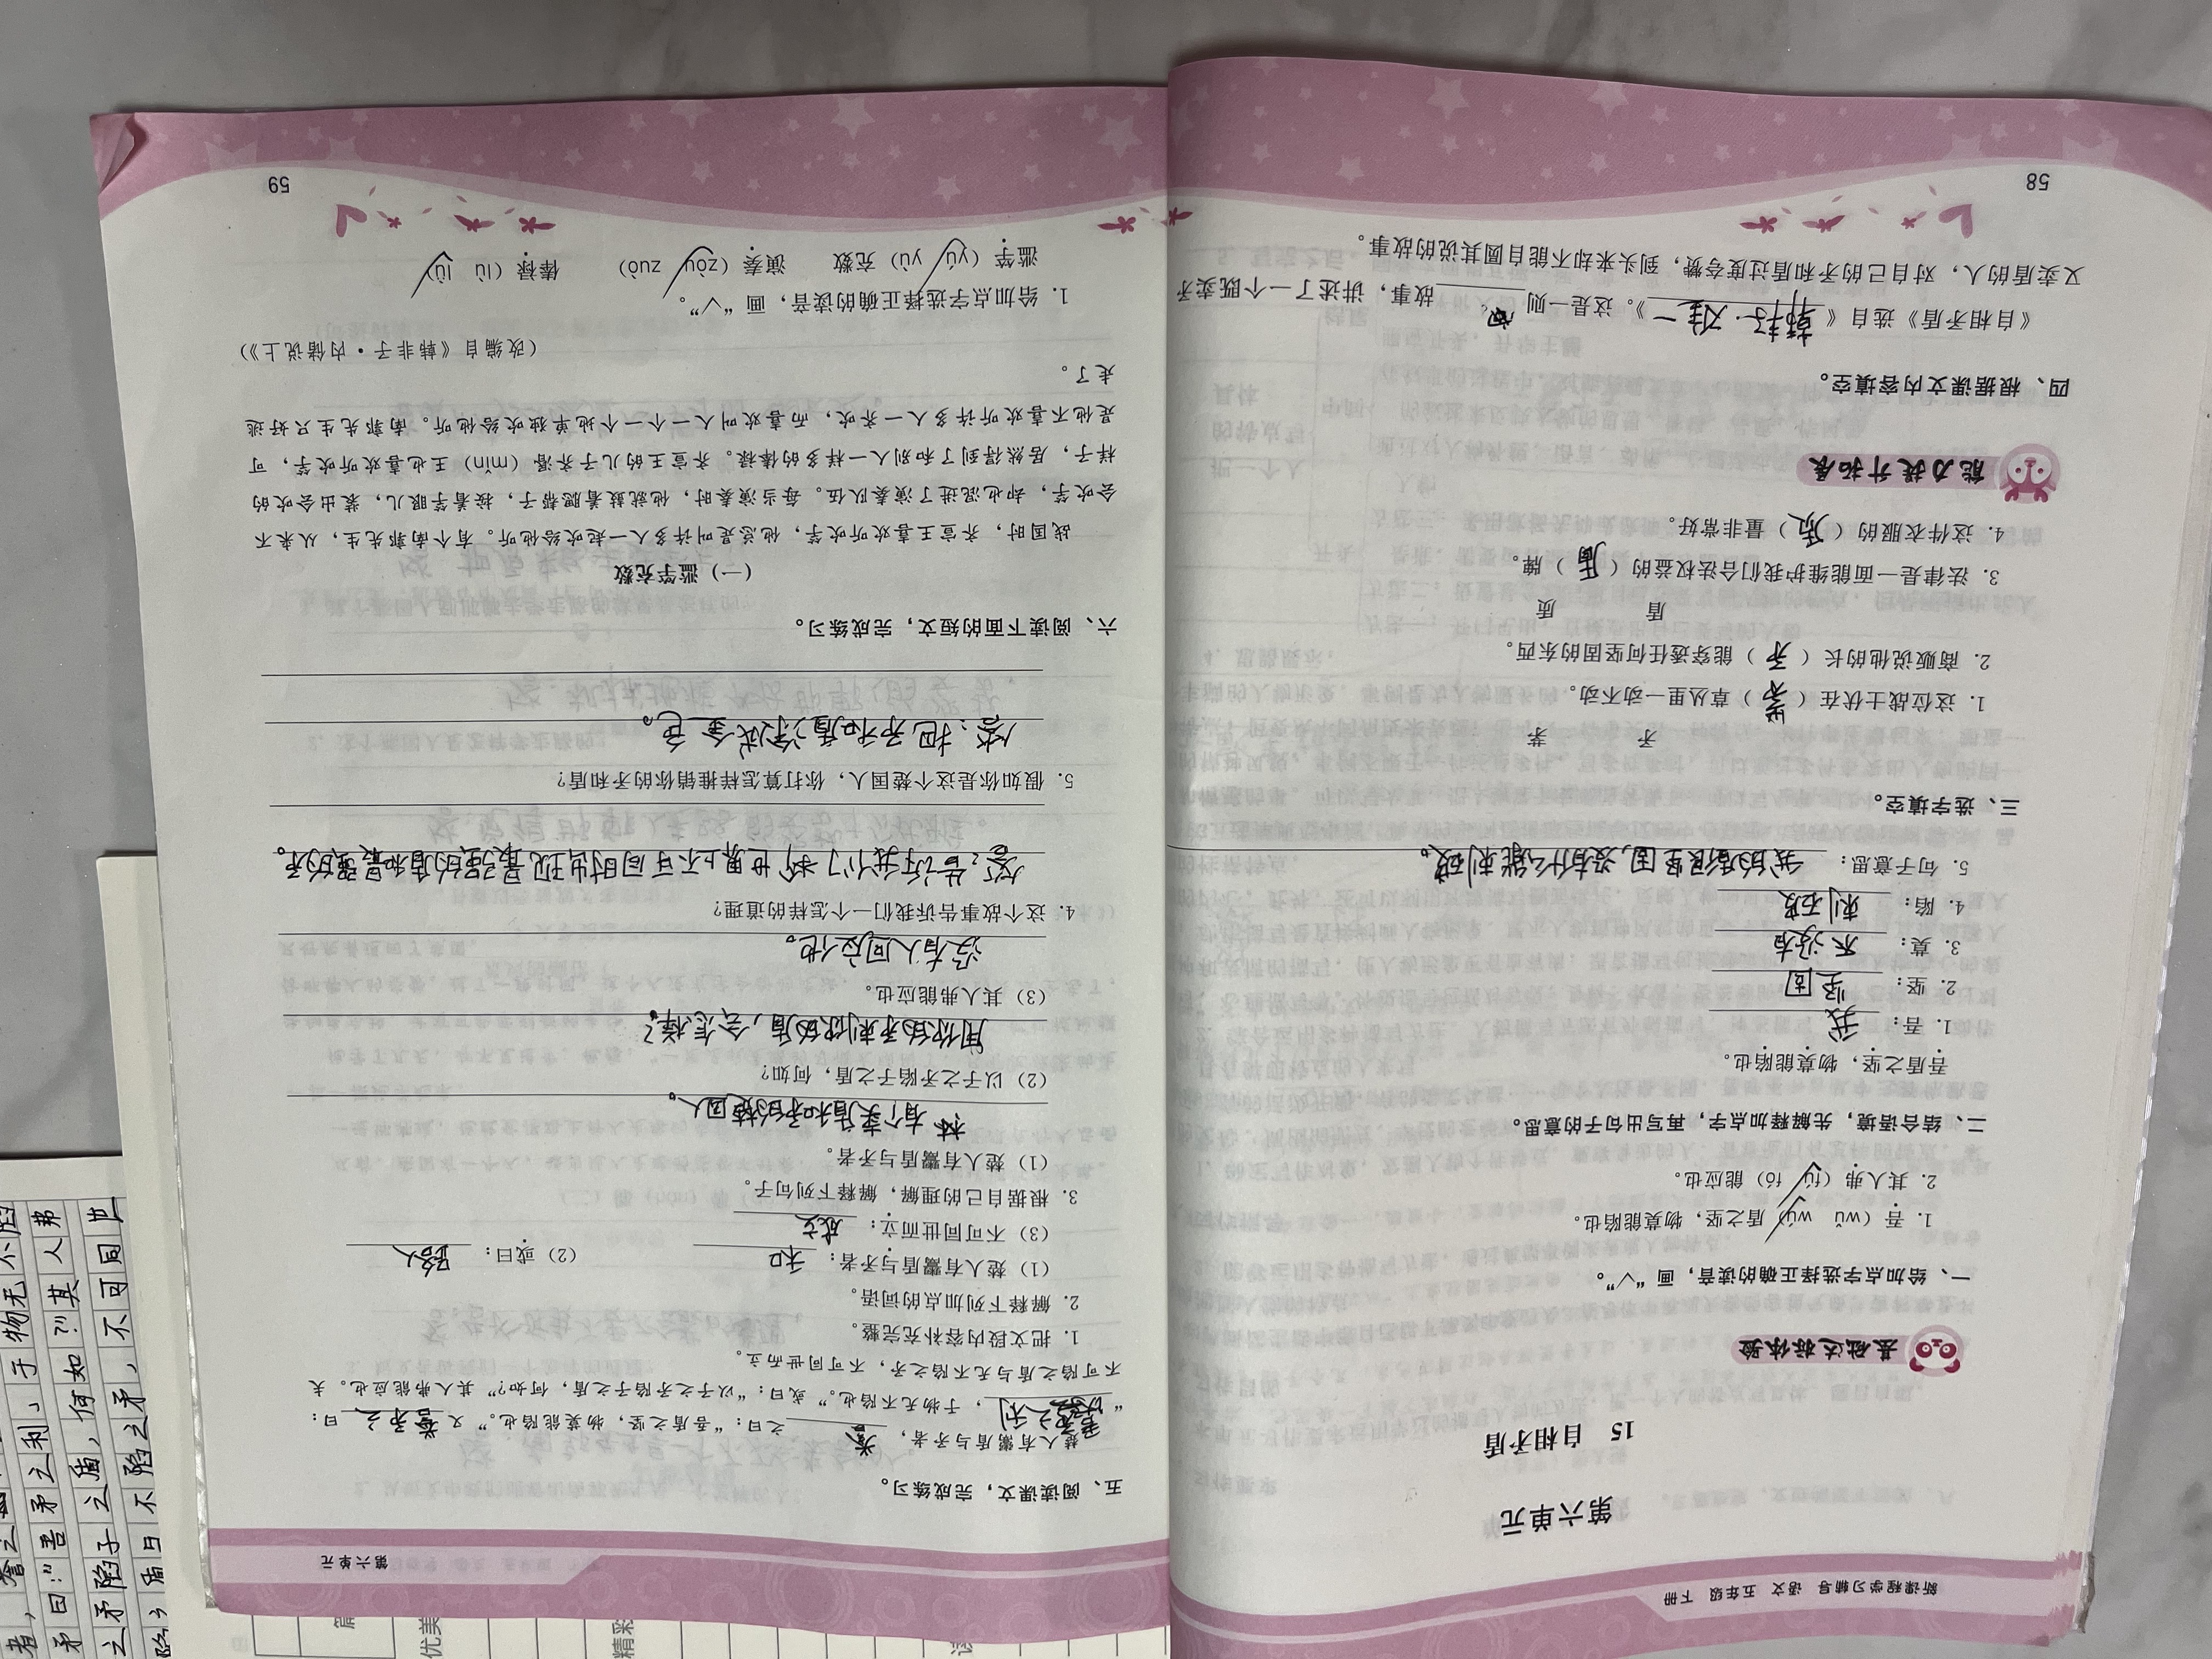 新课程学习辅导 语文 五年级 下册
第六单元
15 自相矛盾
基础达标体验
一、给加点字选择正确的读音，画“√”。
1. 吾（wǔ wú√）盾之坚，物莫能陷也。
2. 其人弗（fú√ fó）能应也。
二、结合语境，先解释加点字，再写出句子的意思。
吾盾之坚，物莫能陷也。
1. 吾：我
2. 坚：坚固
3. 莫：不 没有
4. 陷：刺破
5. 句子意思：我的盾很坚固，没有什么能刺破。
三、选字填空。
矛 茅
1. 这位战士伏在（茅）草丛里一动不动。
2. 商贩说他的长（矛）能穿透任何坚固的东西。
盾 质
3. 法律是一面能维护我们合法权益的（盾）牌。
4. 这件衣服的（质）量非常好。
能力提升拓展
四、根据课文内容填空。
《自相矛盾》选自《韩非子·难一》。这是一则故事，讲述了一个既卖矛
又卖盾的人，对自己的矛和盾过度夸赞，到头来却不能自圆其说的故事。
58
第六单元
五、阅读课文，完成练习。
楚人有鬻盾与矛者，誉之曰：“吾盾之坚，物莫能陷也。”又誉其矛曰：
“吾矛之利，于物无不陷也。”或曰：“以子之矛陷子之盾，何如？”其人弗能应也。夫
不可陷之盾与无不陷之矛，不可同世而立。
1. 把文段内容补充完整。
2. 解释下列加点的词语。
（1）楚人有鬻盾与矛者：和 （2）或曰：路人
（3）不可同世而立：成立
3. 根据自己的理解，解释下列句子。
（1）楚人有鬻盾与矛者。
有个卖盾和矛的楚国人。
（2）以子之矛陷子之盾，何如？
用你的矛刺你的盾，会怎样？
（3）其人弗能应也。
没有人回应他。
4. 这个故事告诉我们一个怎样的道理？
答：告诉我们 世界上不可同时出现最强的盾和最强的矛。
5. 假如你是这个楚国人，你打算怎样推销你的矛和盾？
答：把矛和盾涂成金色。
六、阅读下面的短文，完成练习。
（一）滥竽充数
战国时，齐宣王喜欢听吹竽，他总是叫许多人一起吹给他听。有个南郭先生，从来不
会吹竽，却也混进了演奏队伍。每当演奏时，他就鼓着腮帮子，按着竽眼儿，装出会吹的
样子，居然得到了和别人一样多的俸禄。齐宣王的儿子齐湣（mǐn）王也喜欢听吹竽，可
是他不喜欢听许多人一齐吹，而喜欢叫人一个一个地单独吹给他听。南郭先生只好逃
走了。
（改编自《韩非子·内储说上》）
1. 给加点字选择正确的读音，画“√”。
滥竽（yú√ yù）充数 演奏（zòu√ zuò） 俸禄（lù lǜ√）
59